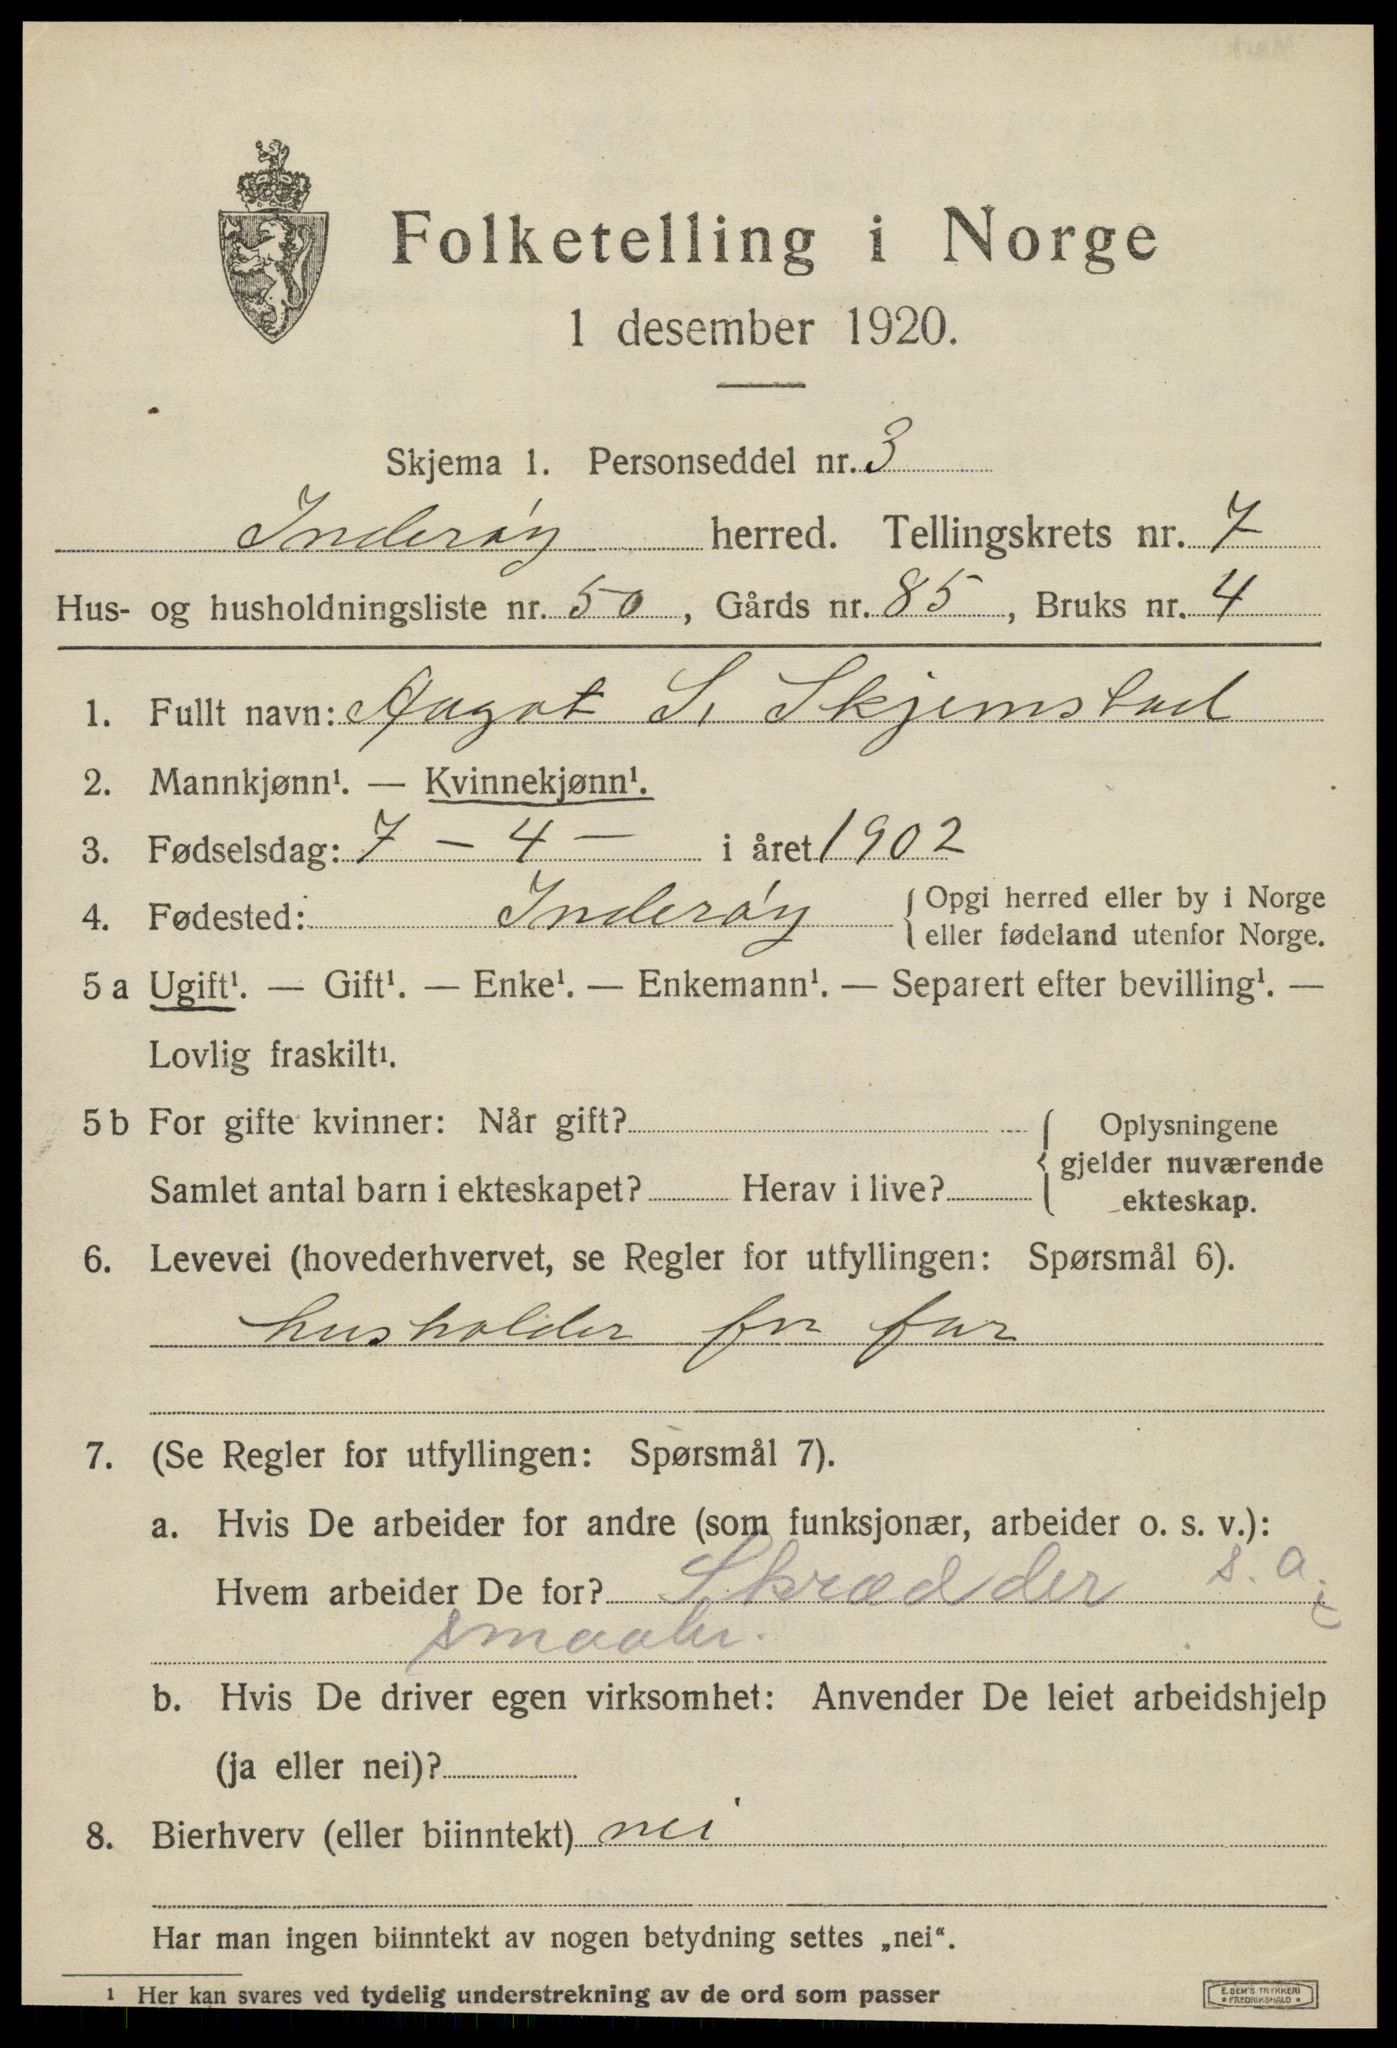 Folketelling i Norge
1 desember 1920.
Skjema 1. Personseddel nr. 3
Inderøy herred. Tellingskrets nr. 7
Hus- og husholdningsliste nr. 50, Gårds nr. 85, Bruks nr. 4
1. Fullt navn: Aagot S. Skjemstad
2. Mannkjønn¹. — Kvinnekjønn¹.
3. Fødselsdag: 7 – 4 – i året 1902
4. Fødested: Inderøy { Opgi herred eller by i Norge
eller fødeland utenfor Norge.
5 a Ugift¹. — Gift¹. — Enke¹. — Enkemann¹. — Separert efter bevilling¹. —
Lovlig fraskilt¹.
5 b For gifte kvinner: Når gift?
Samlet antal barn i ekteskapet? Herav i live?
{ Oplysningene
gjelder nuværende
ekteskap.
6. Levevei (hovederhvervet, se Regler for utfyllingen: Spørsmål 6).
husholder for far
7. (Se Regler for utfyllingen: Spørsmål 7).
a. Hvis De arbeider for andre (som funksjonær, arbeider o. s. v.):
Hvem arbeider De for? Skrædder s. a.
smaabr.
b. Hvis De driver egen virksomhet: Anvender De leiet arbeidshjelp
(ja eller nei)?
8. Bierhverv (eller biinntekt) nei
Har man ingen biinntekt av nogen betydning settes „nei“.
¹ Her kan svares ved tydelig understrekning av de ord som passer
E. SEM'S TRYKKERI
• FREDRIKSHALD •